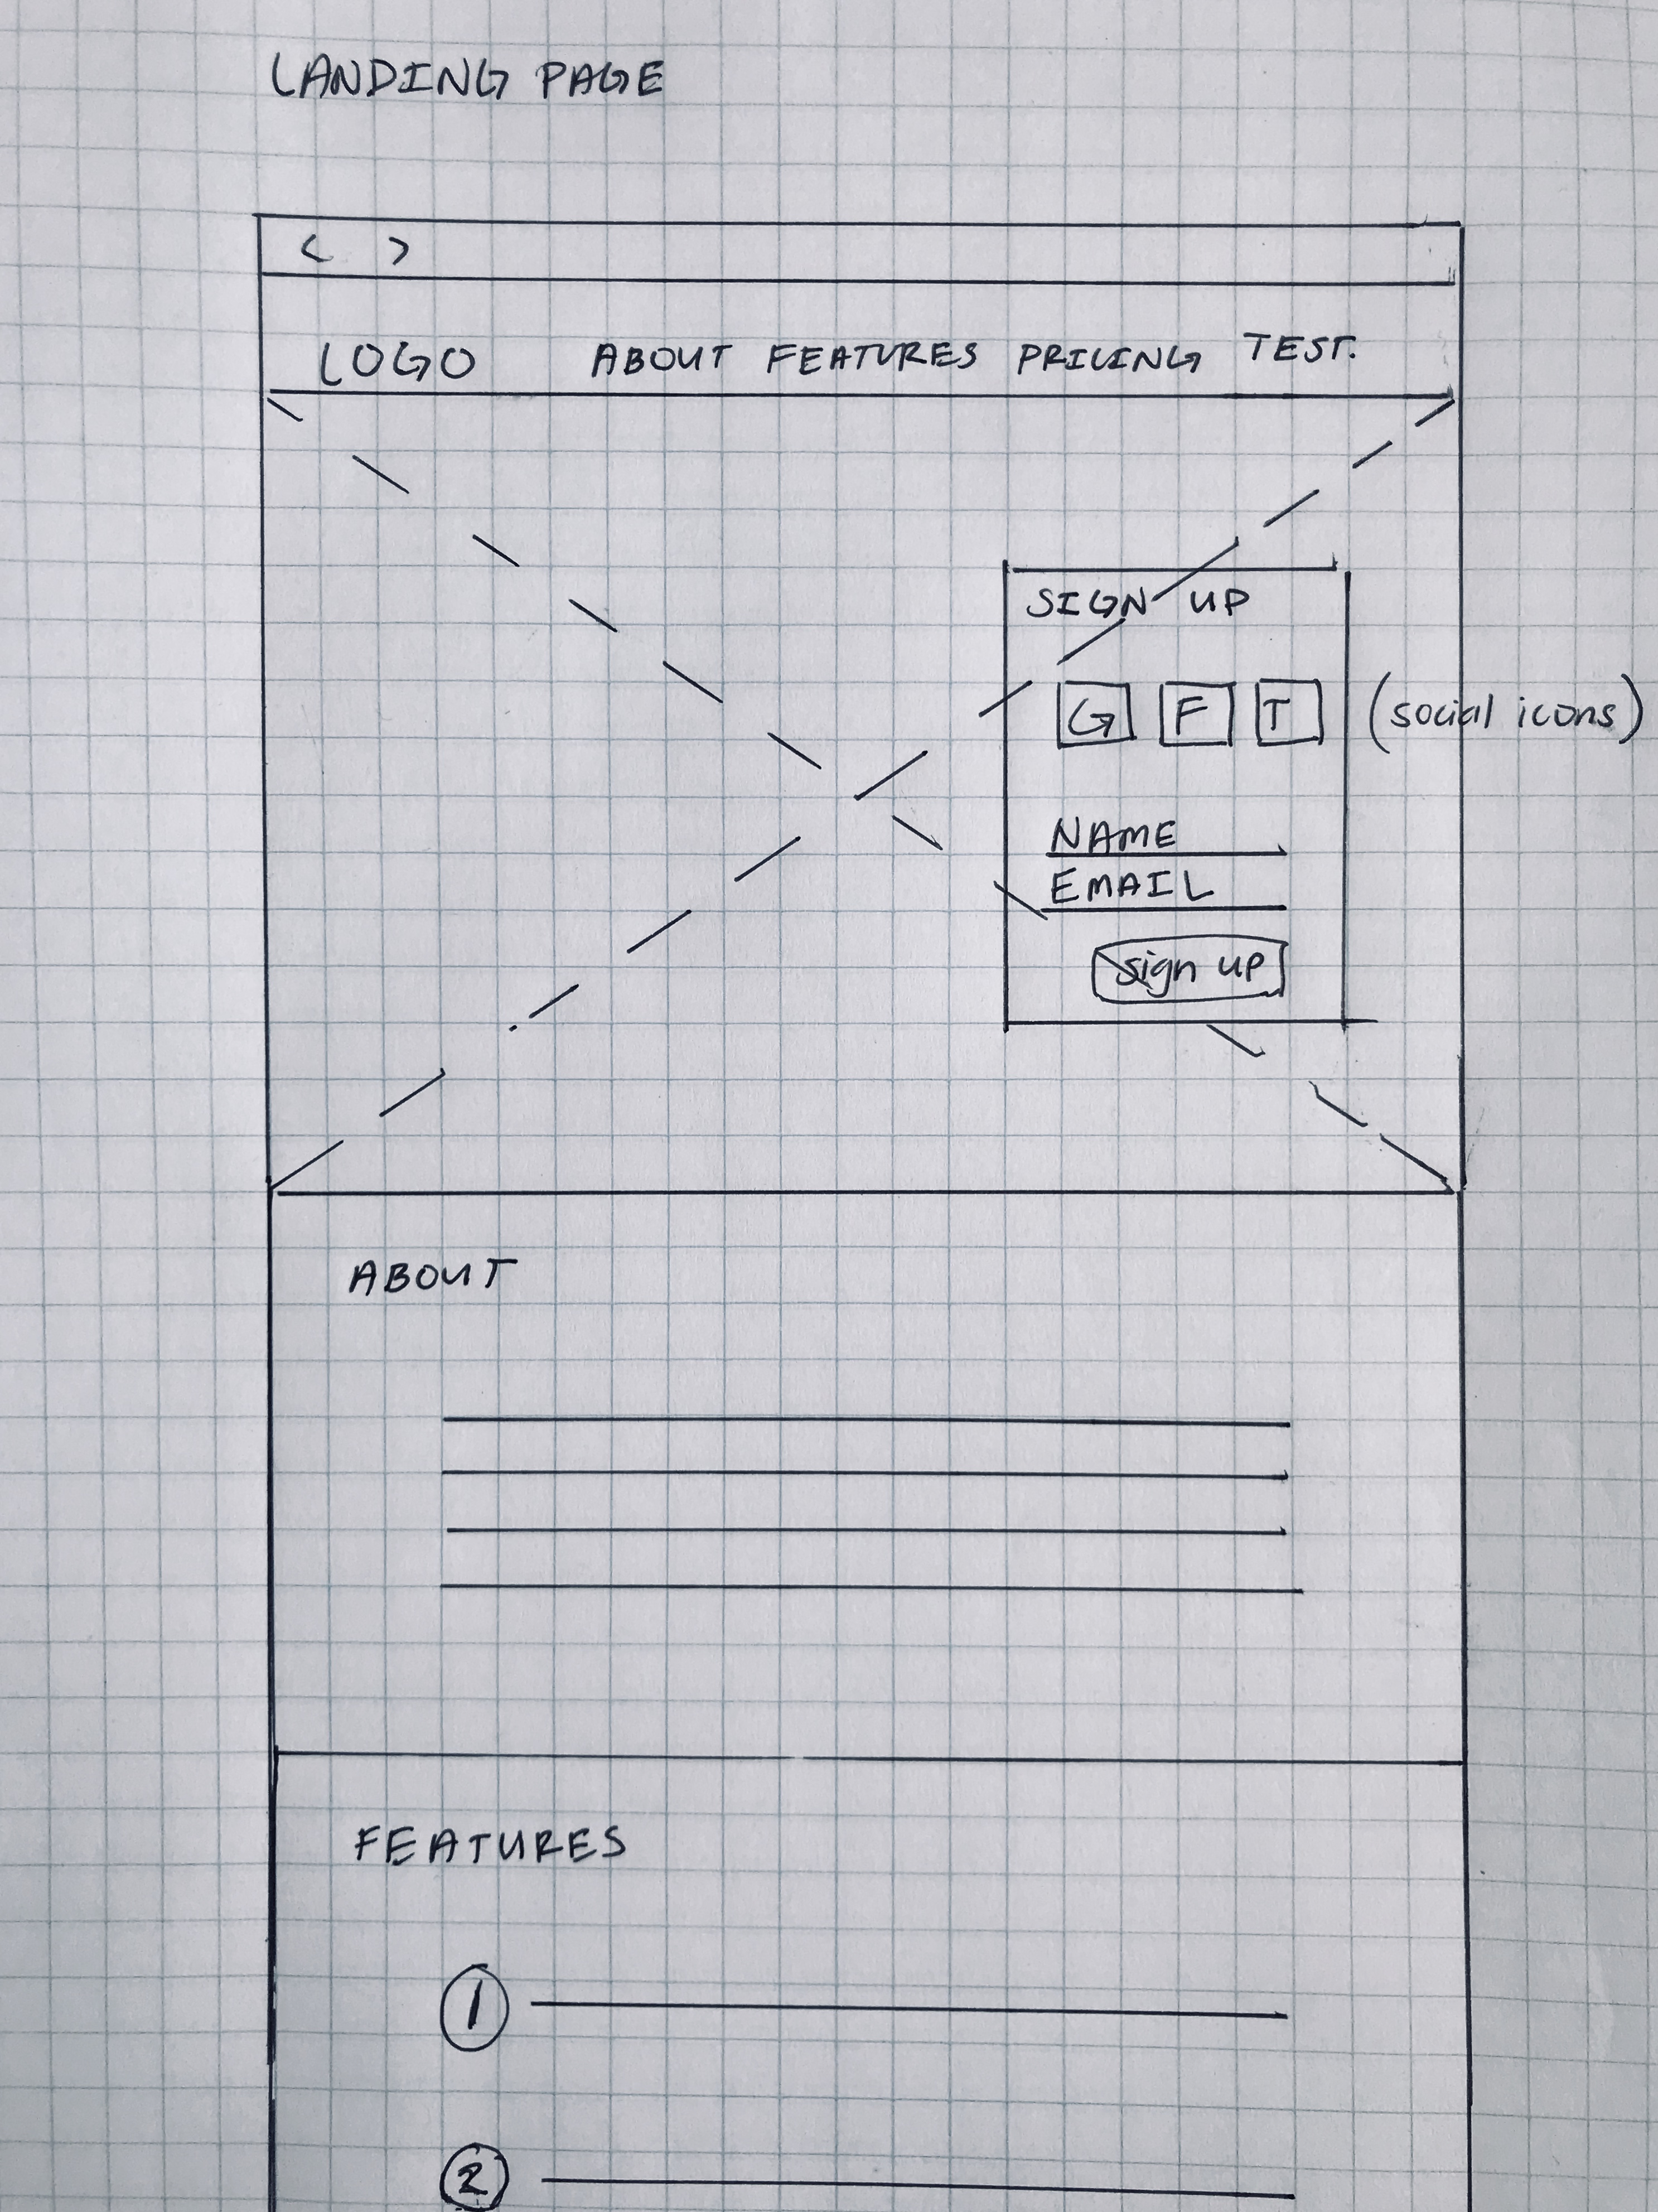 LANDING PAGE
< >
LOGO ABOUT FEATURES PRICING TEST.
SIGN UP
G F T (social icons)
NAME
EMAIL
sign up
ABOUT
FEATURES
1
2